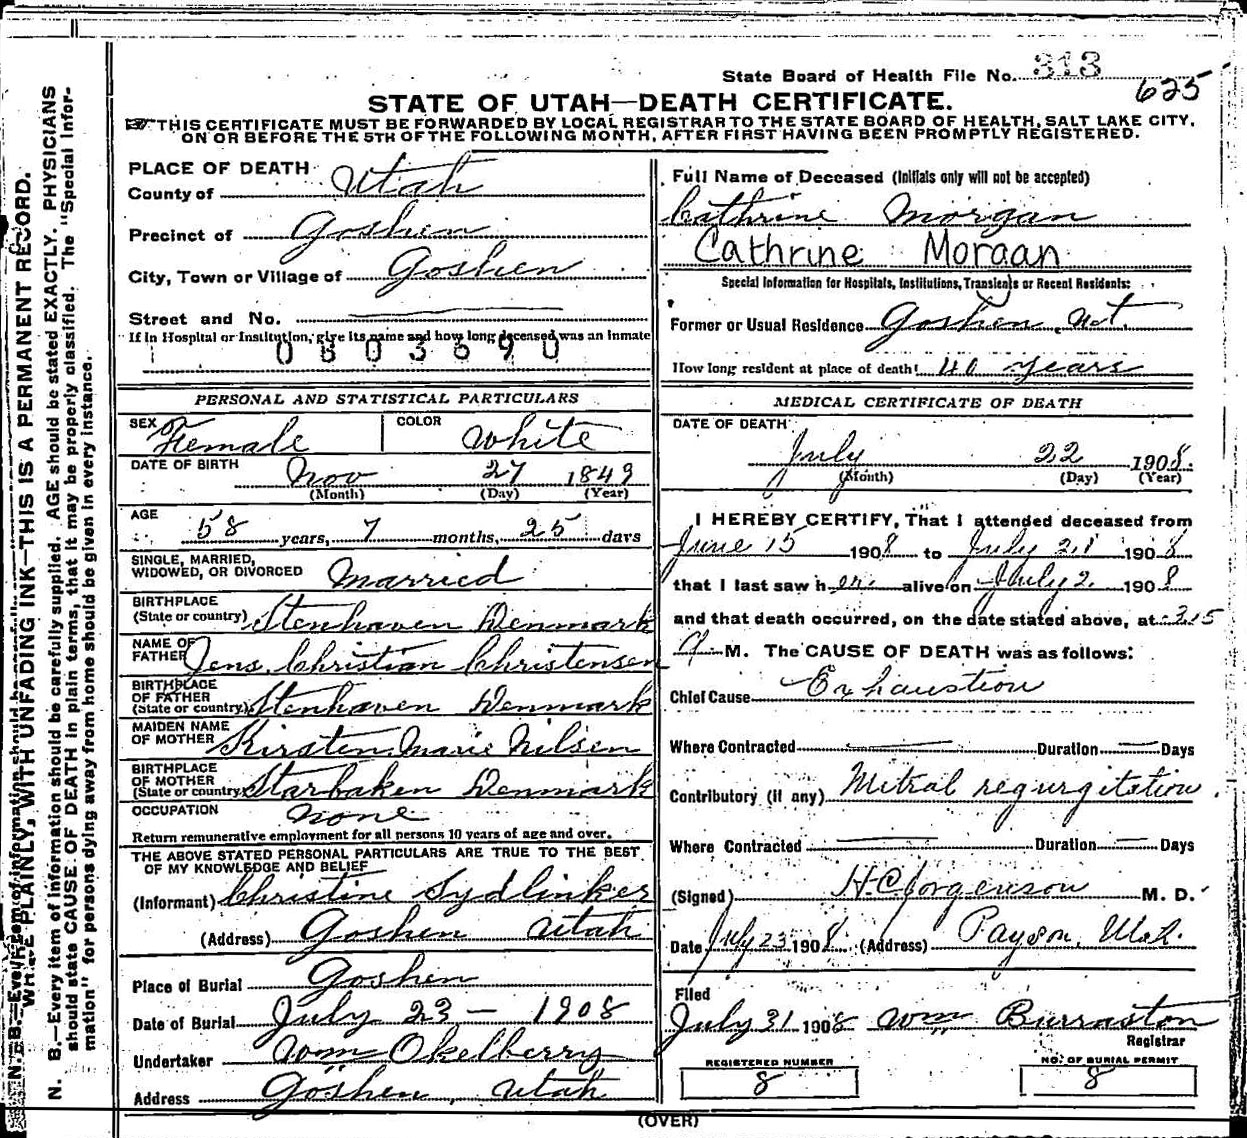 State Board of Health File No. 313
625
STATE OF UTAH—DEATH CERTIFICATE.
THIS CERTIFICATE MUST BE FORWARDED BY LOCAL REGISTRAR TO THE STATE BOARD OF HEALTH, SALT LAKE CITY,
ON OR BEFORE THE 5TH OF THE FOLLOWING MONTH, AFTER FIRST HAVING BEEN PROMPTLY REGISTERED.
PLACE OF DEATH
County of Utah
Precinct of Goshen
City, Town or Village of Goshen
Street and No.
If in Hospital or Institution, give its name and how long deceased was an inmate
0803690
PERSONAL AND STATISTICAL PARTICULARS
SEX Female COLOR White
DATE OF BIRTH Nov 27 1849
(Month) (Day) (Year)
AGE
58 years, 7 months, 25 days
SINGLE, MARRIED,
WIDOWED, OR DIVORCED Married
BIRTHPLACE
(State or country) Stenhaven Denmark
NAME OF
FATHER Jens Christian Christensen
BIRTHPLACE
OF FATHER
(State or country) Stenhaven Denmark
MAIDEN NAME
OF MOTHER Kirsten Marie Nilsen
BIRTHPLACE
OF MOTHER
(State or country) Starbaken Denmark
OCCUPATION none
Return remunerative employment for all persons 10 years of age and over.
THE ABOVE STATED PERSONAL PARTICULARS ARE TRUE TO THE BEST
OF MY KNOWLEDGE AND BELIEF
(Informant) Christine Sydlinker
(Address) Goshen Utah
Place of Burial Goshen
Date of Burial July 23 - 1908
Undertaker Wm Okelberry
Address Goshen, Utah
Full Name of Deceased (Initials only will not be accepted)
Cathrine Morgan
Cathrine Morgan
Special Information for Hospitals, Institutions, Transients or Recent Residents:
Former or Usual Residence Goshen, Ut.
How long resident at place of death? 40 years
MEDICAL CERTIFICATE OF DEATH
DATE OF DEATH
July 22 1908.
(Month) (Day) (Year)
I HEREBY CERTIFY, That I attended deceased from
June 15 1908 to July 21 1908
that I last saw her alive on July 2. 1908
and that death occurred, on the date stated above, at 3.15
M. The CAUSE OF DEATH was as follows:
Chief Cause Exhaustion
Where Contracted Duration Days
Contributory (if any) Mitral regurgitation
Where Contracted Duration Days
(Signed) H C Jorgenson M. D.
Date July 23 1908. (Address) Payson, Utah.
Filed
July 31 1908 Wm Burraston
Registrar
REGISTERED NUMBER
8
NO. OF BURIAL PERMIT
8
(OVER)
WRITE PLAINLY, WITH UNFADING INK—THIS IS A PERMANENT RECORD.
N. B.—Every item of information should be carefully supplied. AGE should be stated EXACTLY. PHYSICIANS
should state CAUSE OF DEATH in plain terms, that it may be properly classified. The "Special Infor-
mation" for persons dying away from home should be given in every instance.